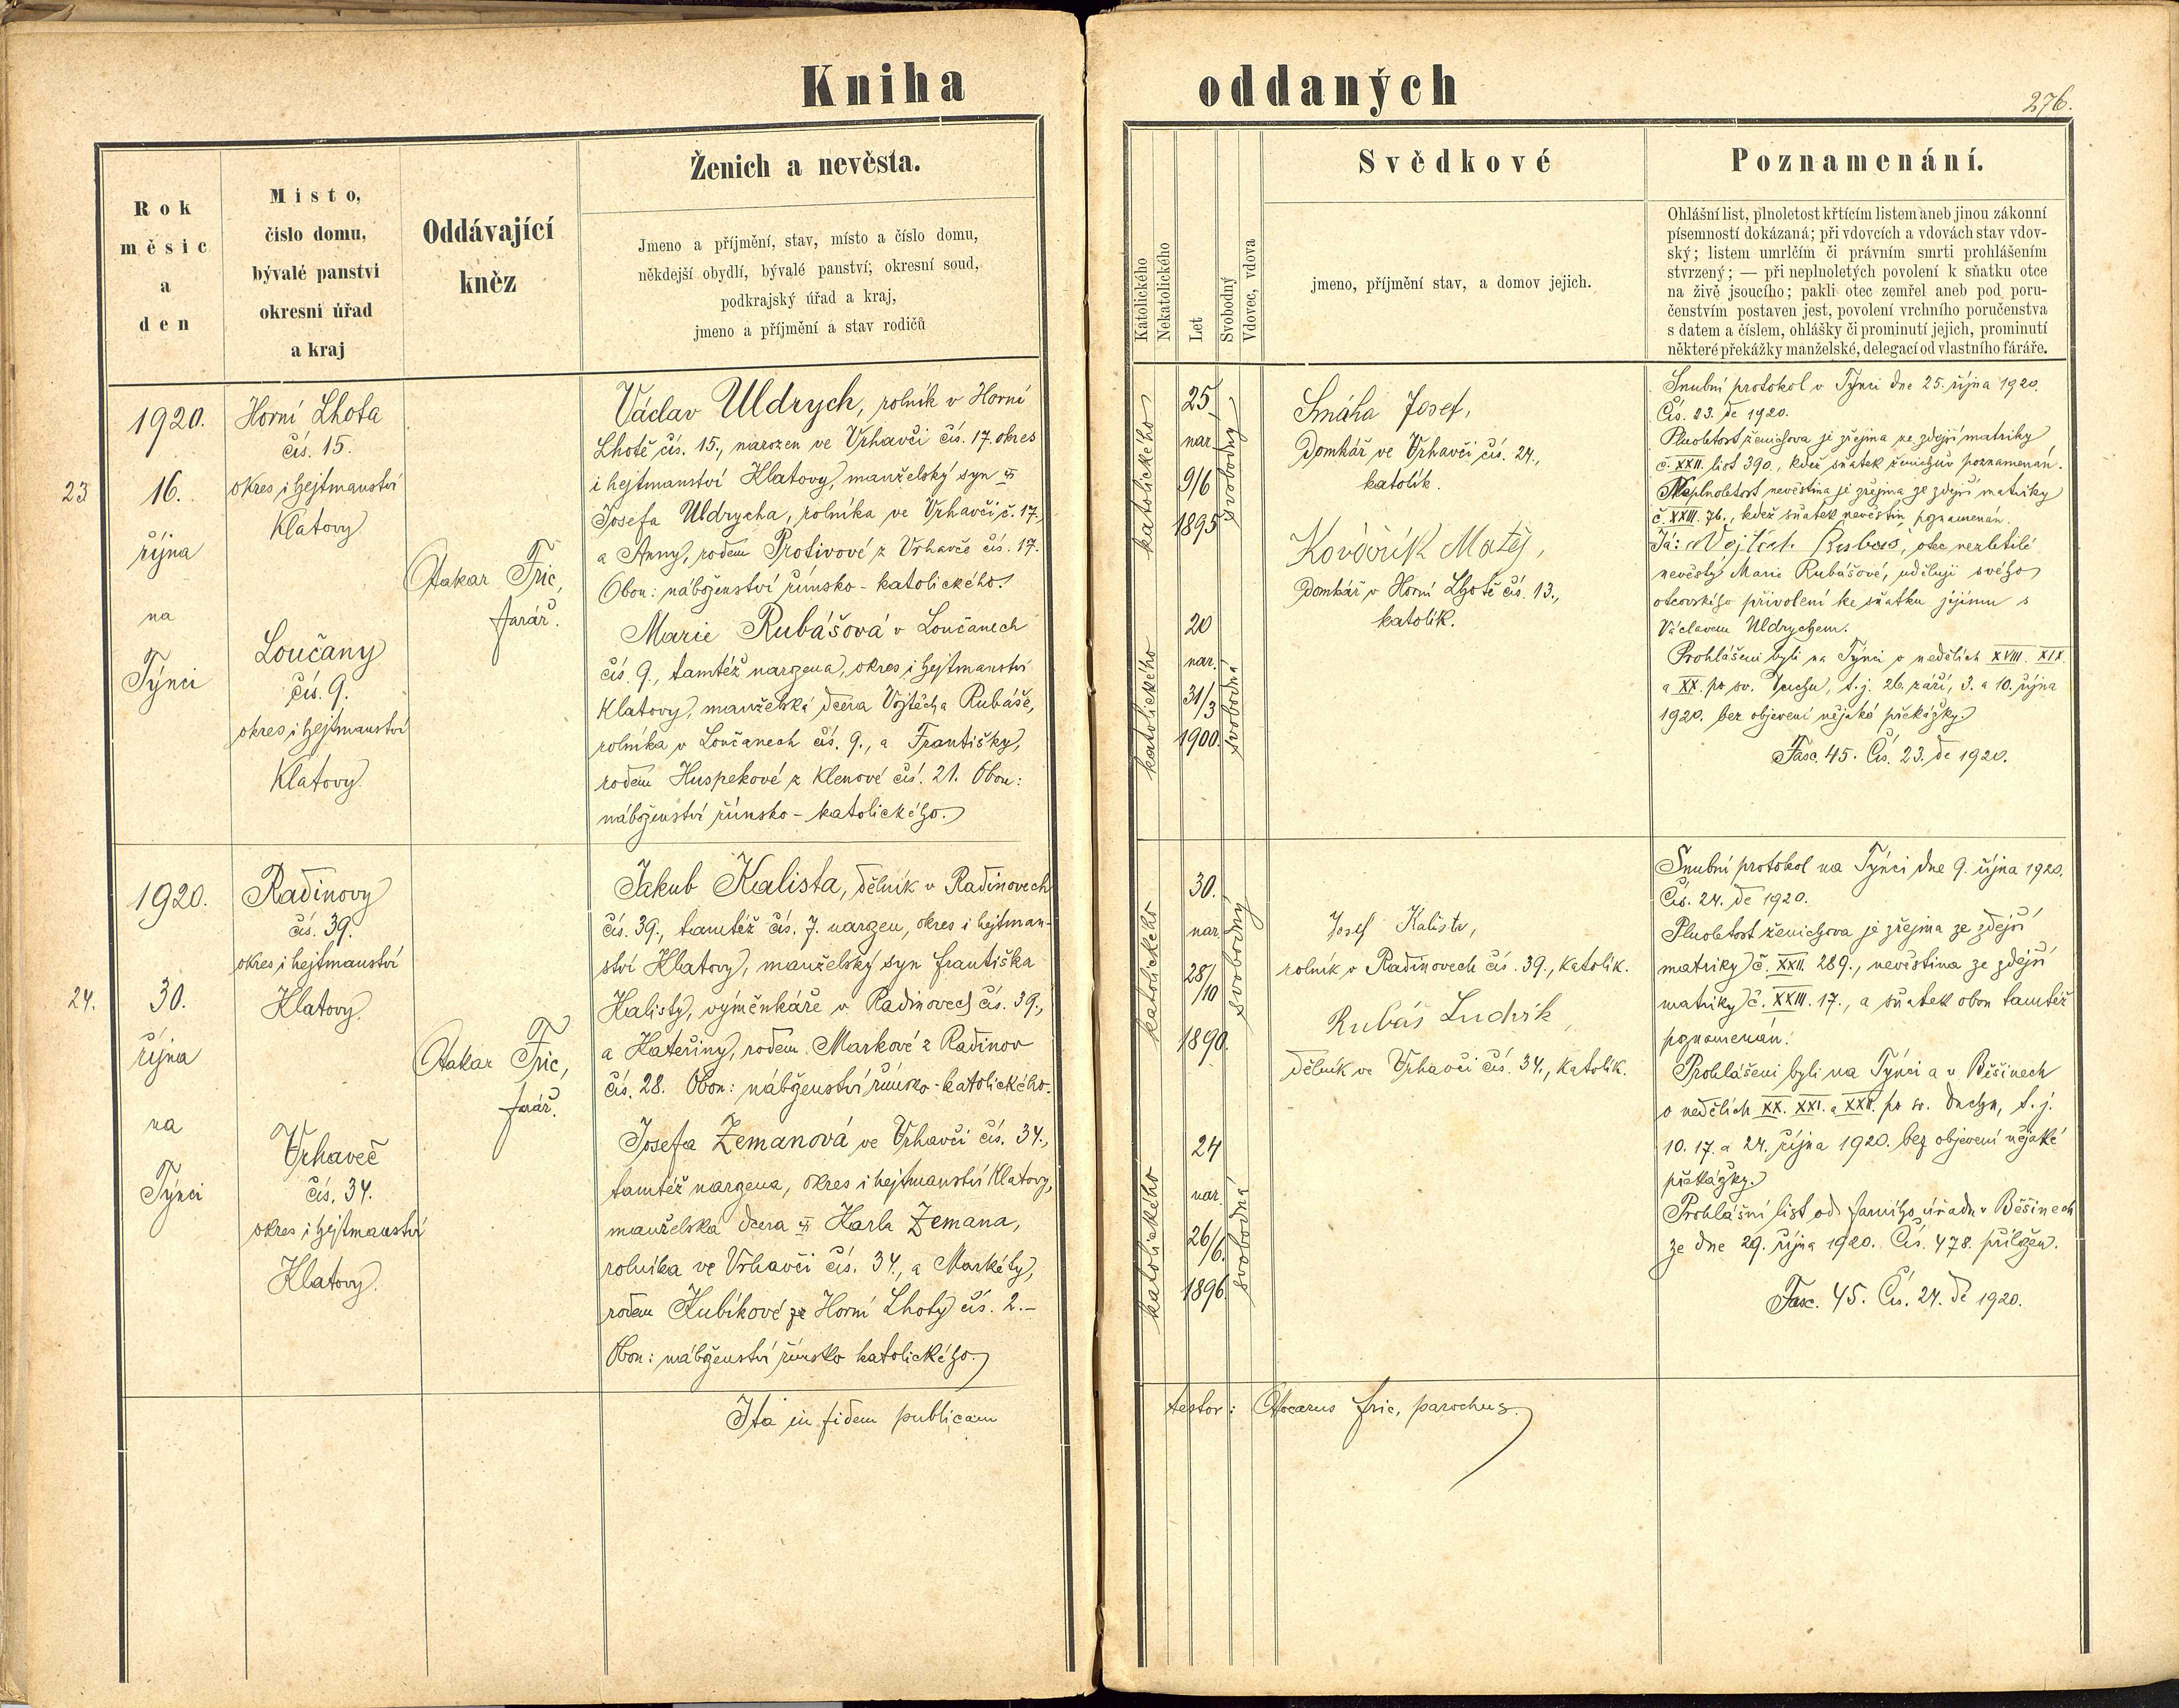 Kniha oddaných
276.
Rok
měsíc
a
den
Místo,
číslo domu,
bývalé panství
okresní úřad
a kraj
Oddávající
kněz
Ženich a nevěsta.
Jmeno a příjmění, stav, místo a číslo domu,
někdejší obydlí, bývalé panství; okresní soud,
podkrajský úřad a kraj,
jmeno a příjmění a stav rodičů
Katolického
Nekatolického
Let
Svobodný
Vdovec, vdova
Svědkové
jmeno, příjmění stav, a domov jejich.
Poznamenání.
Ohlášní list, plnoletost křtícím listem aneb jinou zákonní
písemností dokázaná; při vdovcích a vdovách stav vdov-
ský; listem umrlčím či právním smrti prohlášením
stvrzený; — při neplnoletých povolení k sňatku otce
na živě jsoucího; pakli otec zemřel aneb pod poru-
čenstvím postaven jest, povolení vrchního poručenstva
s datem a číslem, ohlášky či prominutí jejich, prominutí
některé překážky manželské, delegací od vlastního faráře.
23
1920.
16.
října
na
Týnci
Horní Lhota
čís. 15.
okres i hejtmanství
Klatovy
Loučany
čís. 9.
okres i hejtmanství
Klatovy
Otakar Fric,
farář.
Václav Uldrych, rolník v Horní
Lhotě čís. 15., narozen ve Vrhavči čís. 17. okres
i hejtmanství Klatovy, manželský syn
Josefa Uldrycha, rolníka ve Vrhavči č. 17.,
a Anny, rodem Protivové z Vrhavče čís. 17.
Obou: náboženství římsko-katolického.
Marie Rubášová v Loučanech
čís. 9., tamtéž narozena, okres i hejtmanství
Klatovy, manželská dcera Vojtěcha Rubáše,
rolníka v Loučanech čís. 9., a Františky,
rodem Huspekové z Klenové čís. 21. Obou:
náboženství římsko-katolického.
katolického
25
nar.
9/6
1895
svobodný
katolického
20
nar.
31/3
1900.
svobodná
Smáha Josef,
Domkář ve Vrhavči čís. 24.,
katolík.
Kovařík Matěj,
Domkář v Horní Lhotě čís. 13.,
katolík.
Snubní protokol v Týnci dne 25. října 1920.
Čís. 23. de 1920.
Plnoletost ženichova je zřejma ze zdejší matriky
č. XXII. list 390., kdež sňatek ženichův poznamenán.
Neplnoletost nevěstina je zřejma ze zdejší matriky
č. XXIII. 76., kdež sňatek nevěstin poznamenán.
Já: Vojtěch Rubáš, otec nezletilé
nevěsty Marie Rubášové, uděluji svého
otcovského přivolení ke sňatku jejímu s
Václavem Uldrychem.
Prohlášeni byli na Týnci o nedělích XVIII. XIX.
a XX. po sv. Duchu, t. j. 26. září, 3. a 10. října
1920. bez objevení nějaké překážky.
Fasc. 45. Čís. 23. de 1920.
24.
1920.
30.
října
na
Týnci
Radinovy
čís. 39.
okres i hejtmanství
Klatovy.
Vrhaveč
čís. 34.
okres i hejtmanství
Klatovy.
Otakar Fric,
farář.
Jakub Kalista, dělník v Radinovech
čís. 39., tamtéž čís. 7. narozen, okres i hejtman-
ství Klatovy, manželský syn Františka
Kalisty, výměnkáře v Radinovech čís. 39.,
a Kateřiny, rodem Markové z Radinov
čís. 28. Obou: náboženství římsko-katolického.
Josefa Zemanová ve Vrhavči čís. 34.,
tamtéž narozena, okres i hejtmanství Klatovy,
manželská dcera Karla Zemana,
rolníka ve Vrhavči čís. 34., a Markéty,
rodem Kubíkové ze Horní Lhoty čís. 2.-
Obou: náboženství římsko katolického.
katolického
30.
nar.
28/10
1890.
svobodný
katolického
24
nar.
26/6.
1896.
svobodná
Josef Kalista,
rolník v Radinovech čís. 39., katolík.
Rubáš Ludvík,
dělník ve Vrhavči čís. 34., katolík.
Snubní protokol na Týnci dne 9. října 1920.
Čís. 24. de 1920.
Plnoletost ženichova je zřejma ze zdejší
matriky č. XXII. 289., nevěstina ze zdejší
matriky č. XXIII. 17., a sňatek obou tamtéž
poznamenán.
Prohlášeni byli na Týnci a v Běšinech
o nedělích XX. XXI. a XXII. po sv. Duchu, t. j.
10. 17. a 24. října 1920. bez objevení nějaké
překážky.
Prohlášní list od farního úřadu v Běšinech
ze dne 29. října 1920. Čís. 478. přiložen.
Fasc. 45. Čís. 24. de 1920.
Ita in fidem publicam testor: Otocarus Fric, parochus.